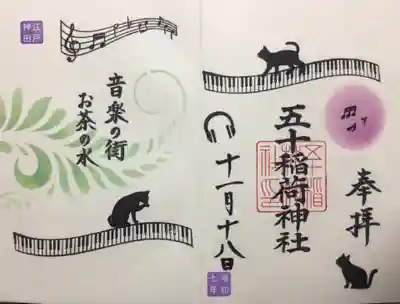 奉拝
五十稲荷神社
十一月十八日
七年
江戸
神田
音楽の街
お茶の水